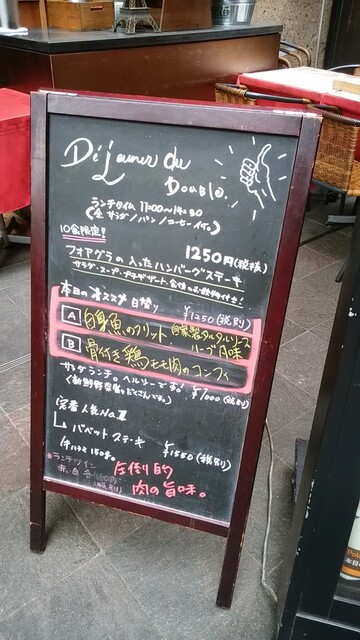 Déjeuner du
Double.
ランチタイム 11:00〜14:30
(全 サラダ/パン/コーヒー付い。)
10食限定!
フォアグラの入ったハンバーグステーキ 1250円(税抜)
サラダ・スープ・プチデザート・食後のお飲物付き!
本日のオススメ 日替り ¥1250(税別)
A 白身魚のフリット 自家製タルタルソース
ハーブ風味
B 骨付き鶏モモ肉のコンフィ
サラダランチ。ヘルシーです! ¥1000(税別)
(新鮮野菜盛りだくさんです。)
定番人気No.1!
バベットステーキ
(牛ハラミ 150g。 ¥1550(税別)
ランチワイン
赤,白
圧倒的
肉の旨味。